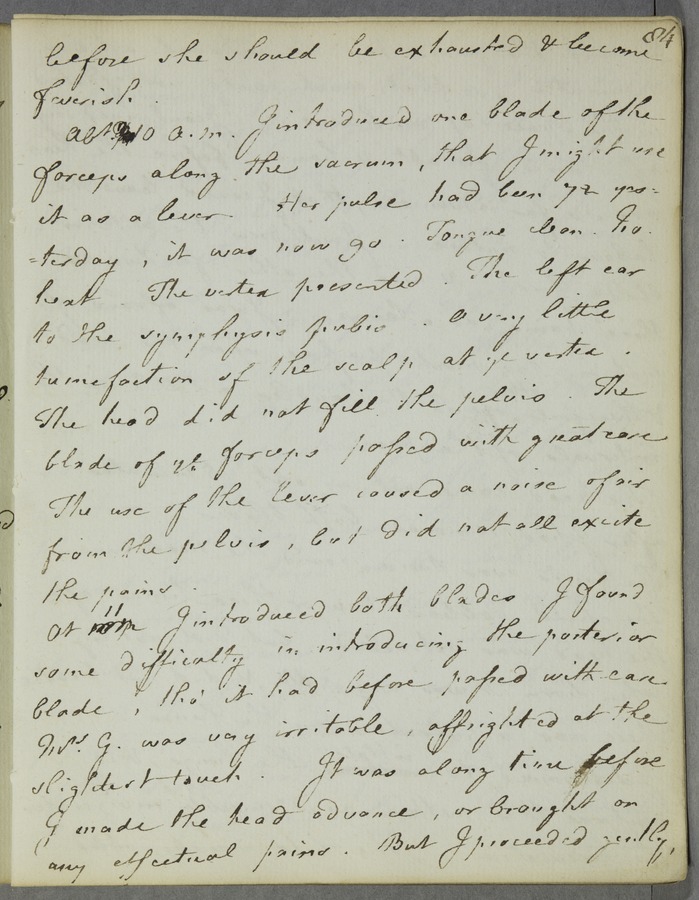 84
before she should be exhausted & become
feverish.
Abt 10 a.m. I introduced one blade of the
forceps along the sacrum, that I might use
it as a lever. Her pulse had been 72 yes=
=terday, it was now 90. Tongue clean. No.
heat. The vertex presented. The left ear
to the symphysis pubis. A very little
tumefaction of the scalp at ye vertex.
The head did not fill the pelvis. The
blade of ye forceps passed with great care
The use of the lever caused a noise of air
from the pelvis, but did not all excite
the pains.
At 11 I introduced both blades I found
some difficulty in introducing the posterior
blade, tho' it had before passed with care
Mrs. G. was very irritable, affrighted at the
slightest touch. It was along time before
I made the head advance, or brought on
any effectual pains. But I proceeded gently,